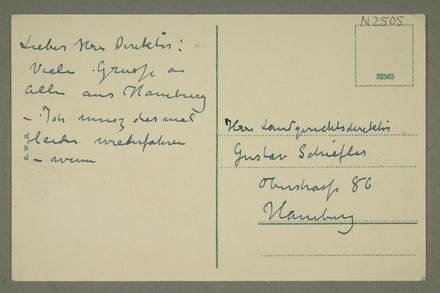 Lieber Herr Direktor!
Viele Grüsse an
alle aus Hamburg
– Ich muss diesmal
leider wiederfahren
– wenn
K.W.B.
N2505
32563
Herrn Landgerichtsdirektor
Gustav Schiefler
Oberstrasse 86
Hamburg